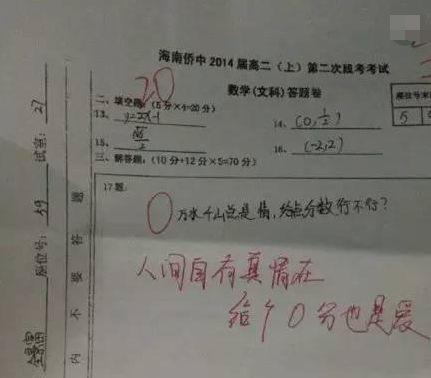 海南侨中2014届高二（上）第二次段考考试
数学(文科)答题卷
20
二、填空题：(5分×4=20分)
13、y=2x-1
14、(0,1/2)
15、
16、(-2,2)
三、解答题：(10分+12分×5=70分)
17题：
0 万水千山总是情，给点分数行不行？
人间自有真情在
给个0分也是爱
试室：27
座位号：59
内不要答题
座位号末
5